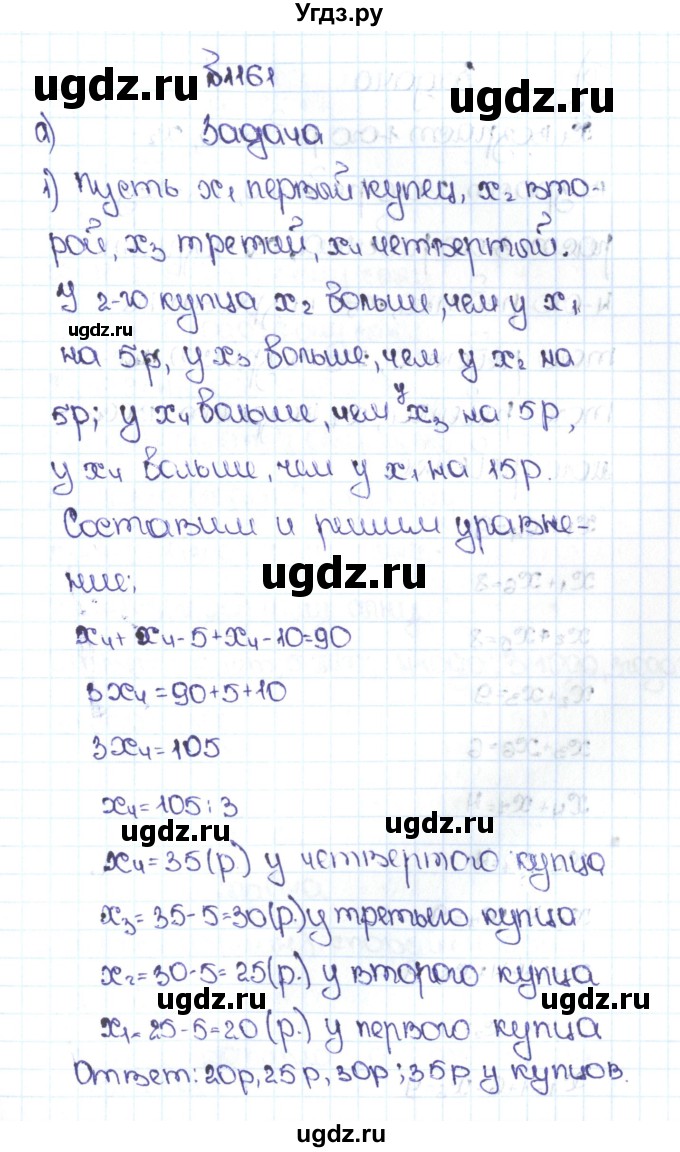 Угдз.ру
№1161
ugdz.ru
ugdz.ru
а) Задача
1) Пусть x₁ первый купец, x₂ вто-
рой, x₃ третий, x₄ четвертый.
У 2-го купца x₂ больше, чем у x₁
ugdz.ru
на 5р, у x₃ больше, чем у x₂ на
5р; у x₄ больше, чем у x₃ на 5р,
у x₄ больше, чем у x₁ на 15р.
Составим и решим уравне-
ugdz.ru
ние:
x₄+x₄-5+x₄-10=90
3x₄=90+5+10
3x₄=105
x₄=105:3
ugdz.ru
ugdz.ru
x₄=35(р.) у четвертого купца
x₃=35-5=30(р.) у третьего купца
x₂=30-5=25(р.) у второго купца
ugdz.ru
ugdz.ru
x₁=25-5=20(р.) у первого купца
Ответ: 20р, 25р, 30р; 35р. у купцов.
ugdz.ru